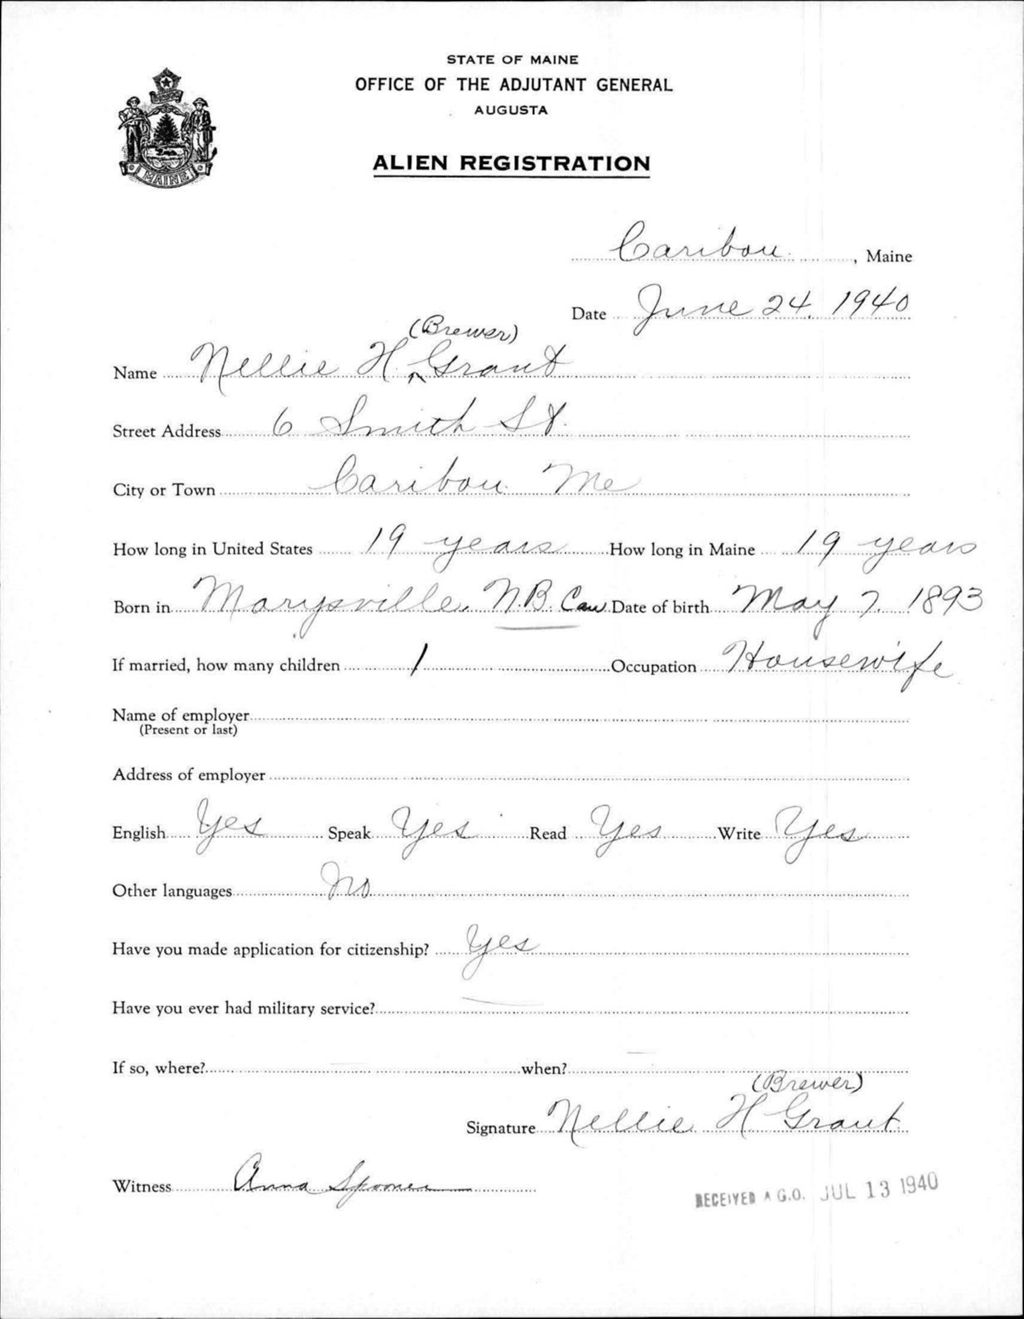 STATE OF MAINE
OFFICE OF THE ADJUTANT GENERAL
AUGUSTA
ALIEN REGISTRATION
MAINE
Caribou, Maine
Date June 24, 1940
(Brewer)
Name Nellie H. ^ Grant
Street Address 6 Smith St.
City or Town Caribou Me
How long in United States 19 years How long in Maine 19 years
Born in Marysville, N.B. Can Date of birth May 7, 1893
If married, how many children 1 Occupation Housewife
Name of employer
(Present or last)
Address of employer
English Yes Speak Yes Read Yes Write Yes
Other languages No
Have you made application for citizenship? Yes
Have you ever had military service? —
If so, where? — when? —
(Brewer)
Signature Nellie H Grant
Witness Anna Spooner
RECEIVED A.G.O. JUL 13 1940